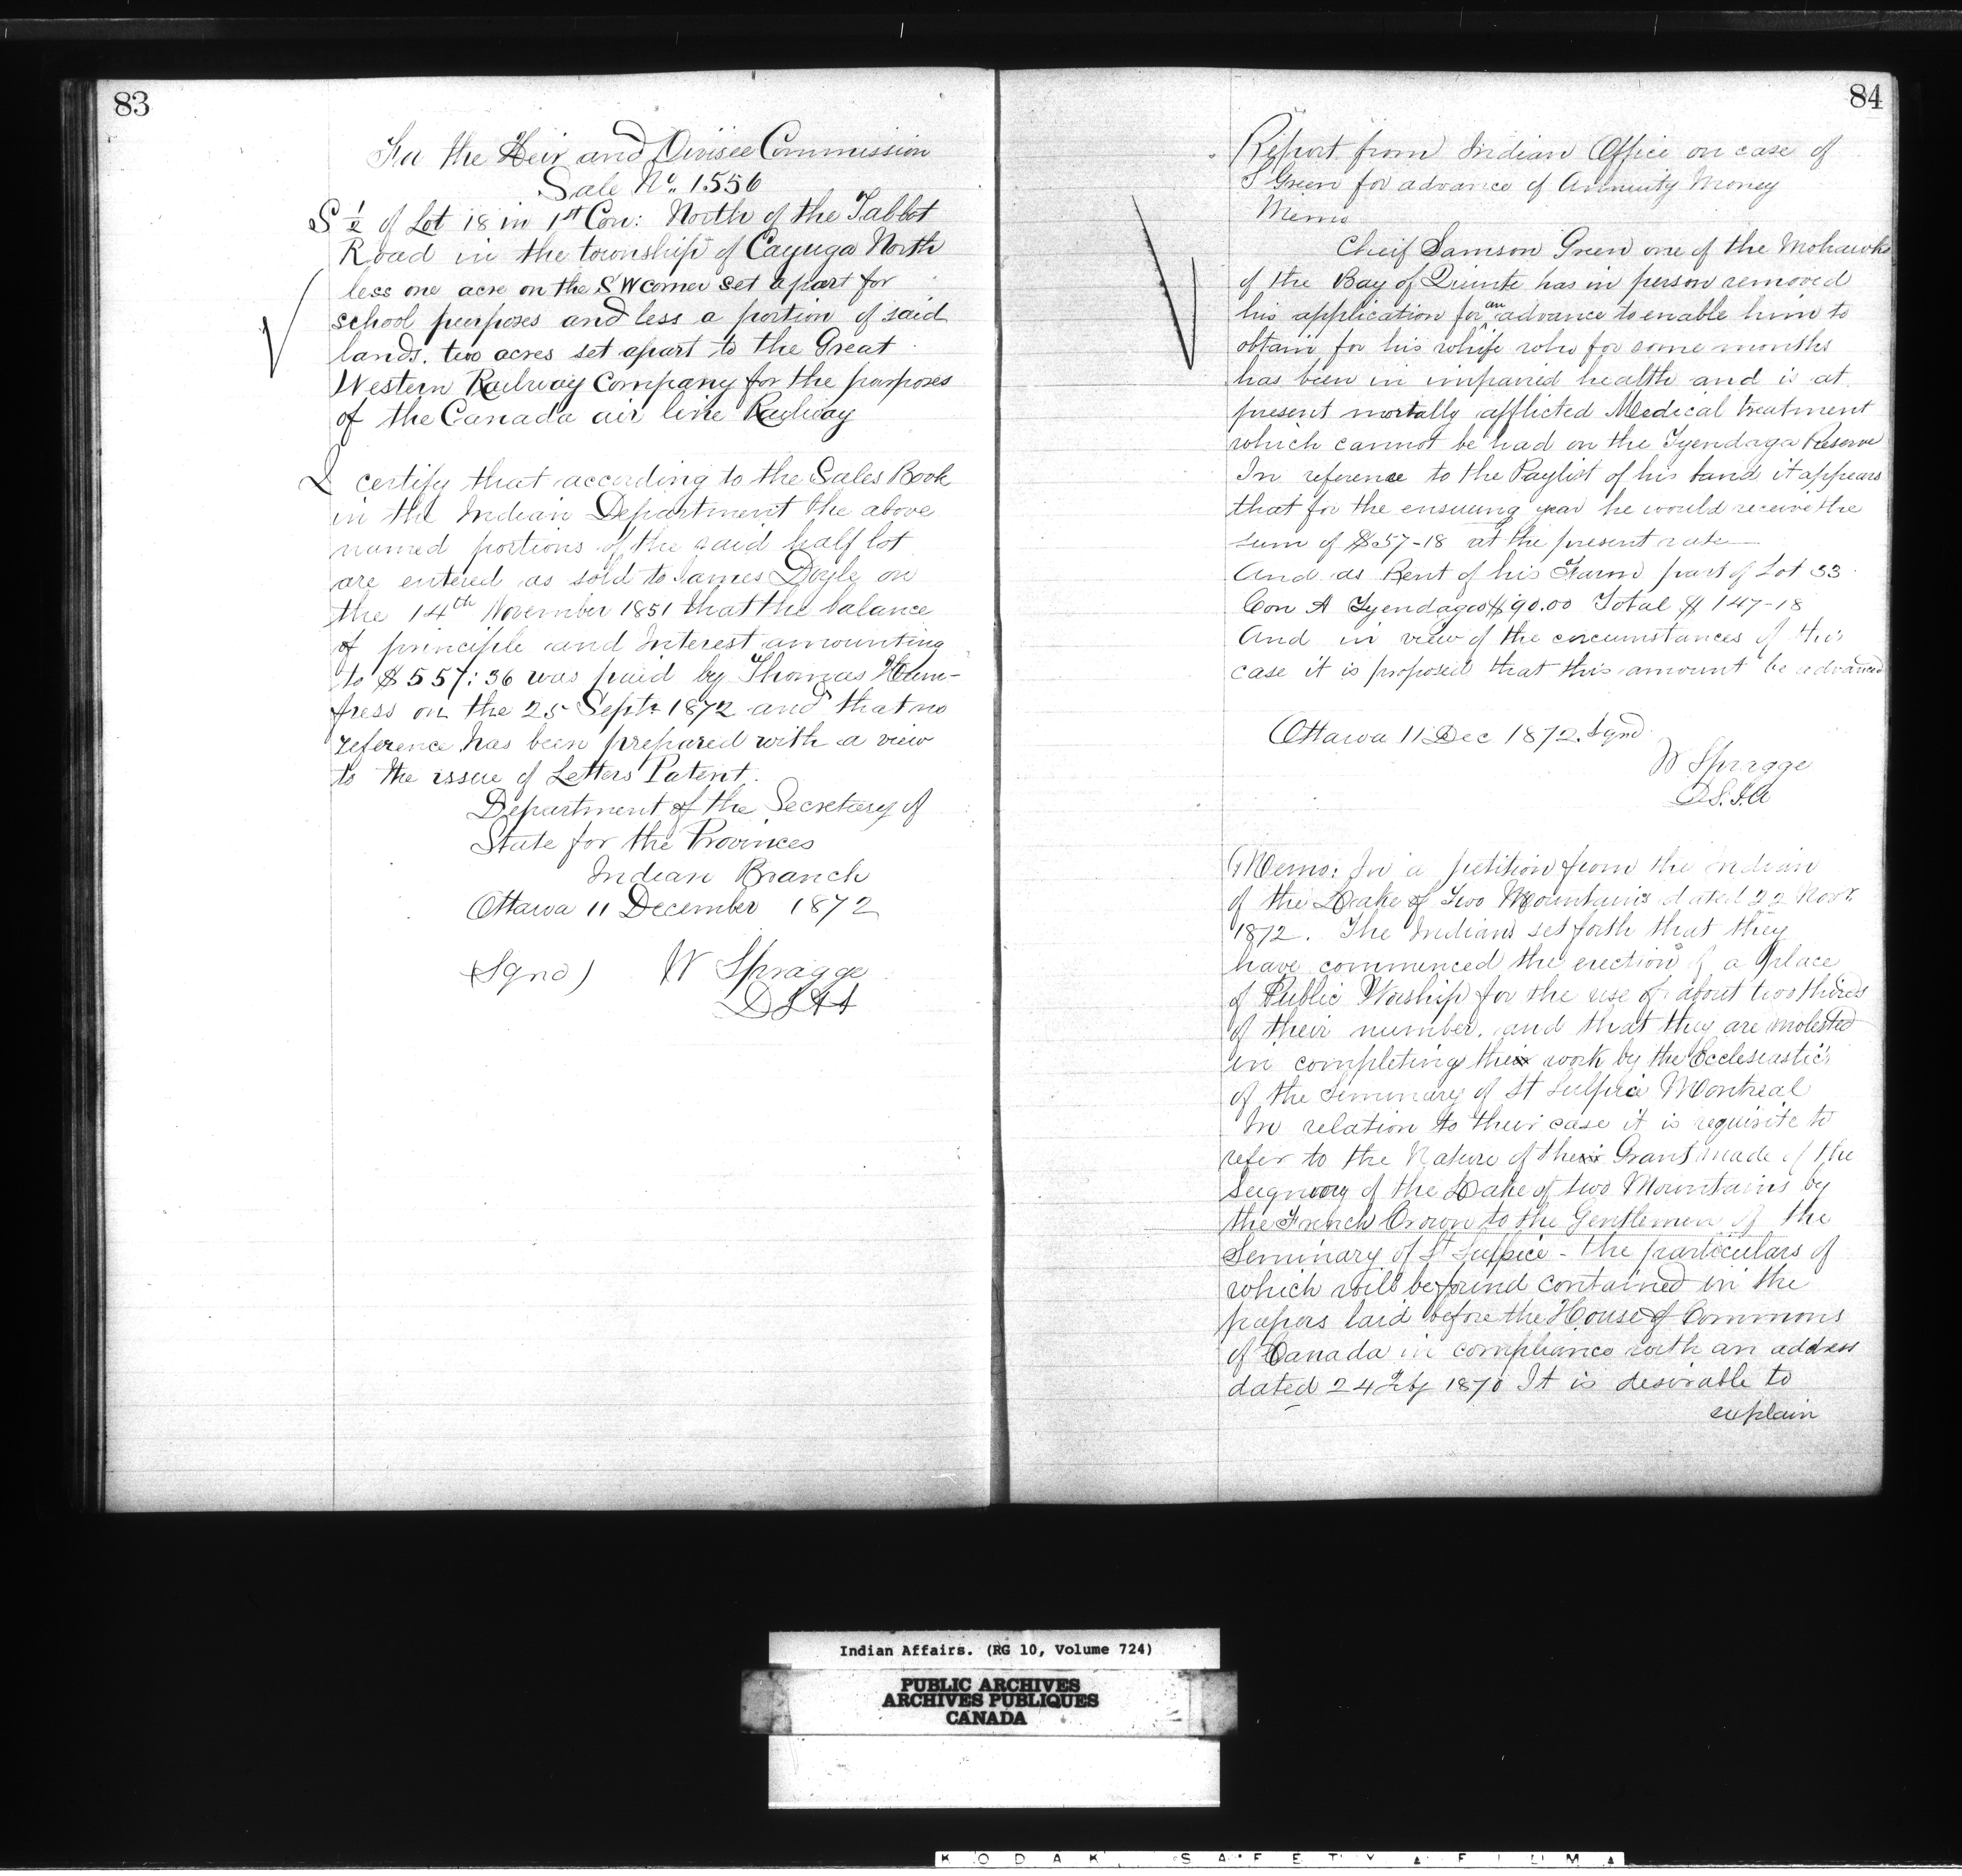 83
the Heir and Divisee Commission
Sale No. 1556
S 1/2 of Lot 18 in 1st Con: North of the Talbot
Road in the township of Cayuga North
less one acre on the S W corner set apart for
school purposes and less a portion of said
lands. two acres set apart to the Great
Western Railway Company for the purposes
of the Canada air line Railway
I certify that according to the Sales Book
in the Indian Department the above
named portions of the said half lot
are entered as sold to James Doyle on
the 14th November 1851 that the balance
of principle and Interest amounting
to $557:36 was paid by Thomas
on the 25 Sept. 1872 and that no
reference has been prepared with a view
to the issue of Letters Patent.
Department of the Secretary of
State for the Provinces
Indian Branch
Ottawa 11 December 1872
(Sgnd) W Spragge
84
Report from Indian Office on case of
S Green for advance of Annuity Money
Memo
Cheif Samson Green one of the Mohawks
of the Bay of Quinte has in person removed
his application for an advance to enable him to
obtain for his whife who for some months
has been in impaired health and is at
present mortally afflicted Medical treatment
which cannot be had on the Tyendaga Reserve
In reference to the Paylist of his band it appears
that for the ensuing year he would receive the
sum of $57-18 at the present rate
And as Rent of his Farm part of Lot 33
Con A Tyendaga $90.00 Total $147-18
And in view of the circumstances of this
case it is proposed that this amount be advanced
Ottawa 11 Dec 1872. Sgnd
W Spragge
D.S.I.A
Memo: In a petition from the Indian
of the Lake of Two Mountains dated 22 Novr.
1872. The Indians set forth that they
have commenced the erection of a place
of Public Worship for the use of about two thirds
of their number. and that they are molested
in completing their work by the Ecclesiastics
of the Seminary of St Sulpice Montreal
In relation to their case it is requisite to
refer to the Nature of the Grant made of the
Seignory of the Lake of two Mountains by
the French Crown to the Gentlemen of the
Seminary of St Sulpice - the particulars of
which will be found contained in the
papers laid before the House of Commons
of Canada in compliance with an address
dated 24 Feby 1870 It is desirable to
explain
Indian Affairs. (RG 10, Volume 724)
PUBLIC ARCHIVES
ARCHIVES PUBLIQUES
CANADA
KODAK SAFETY FILM